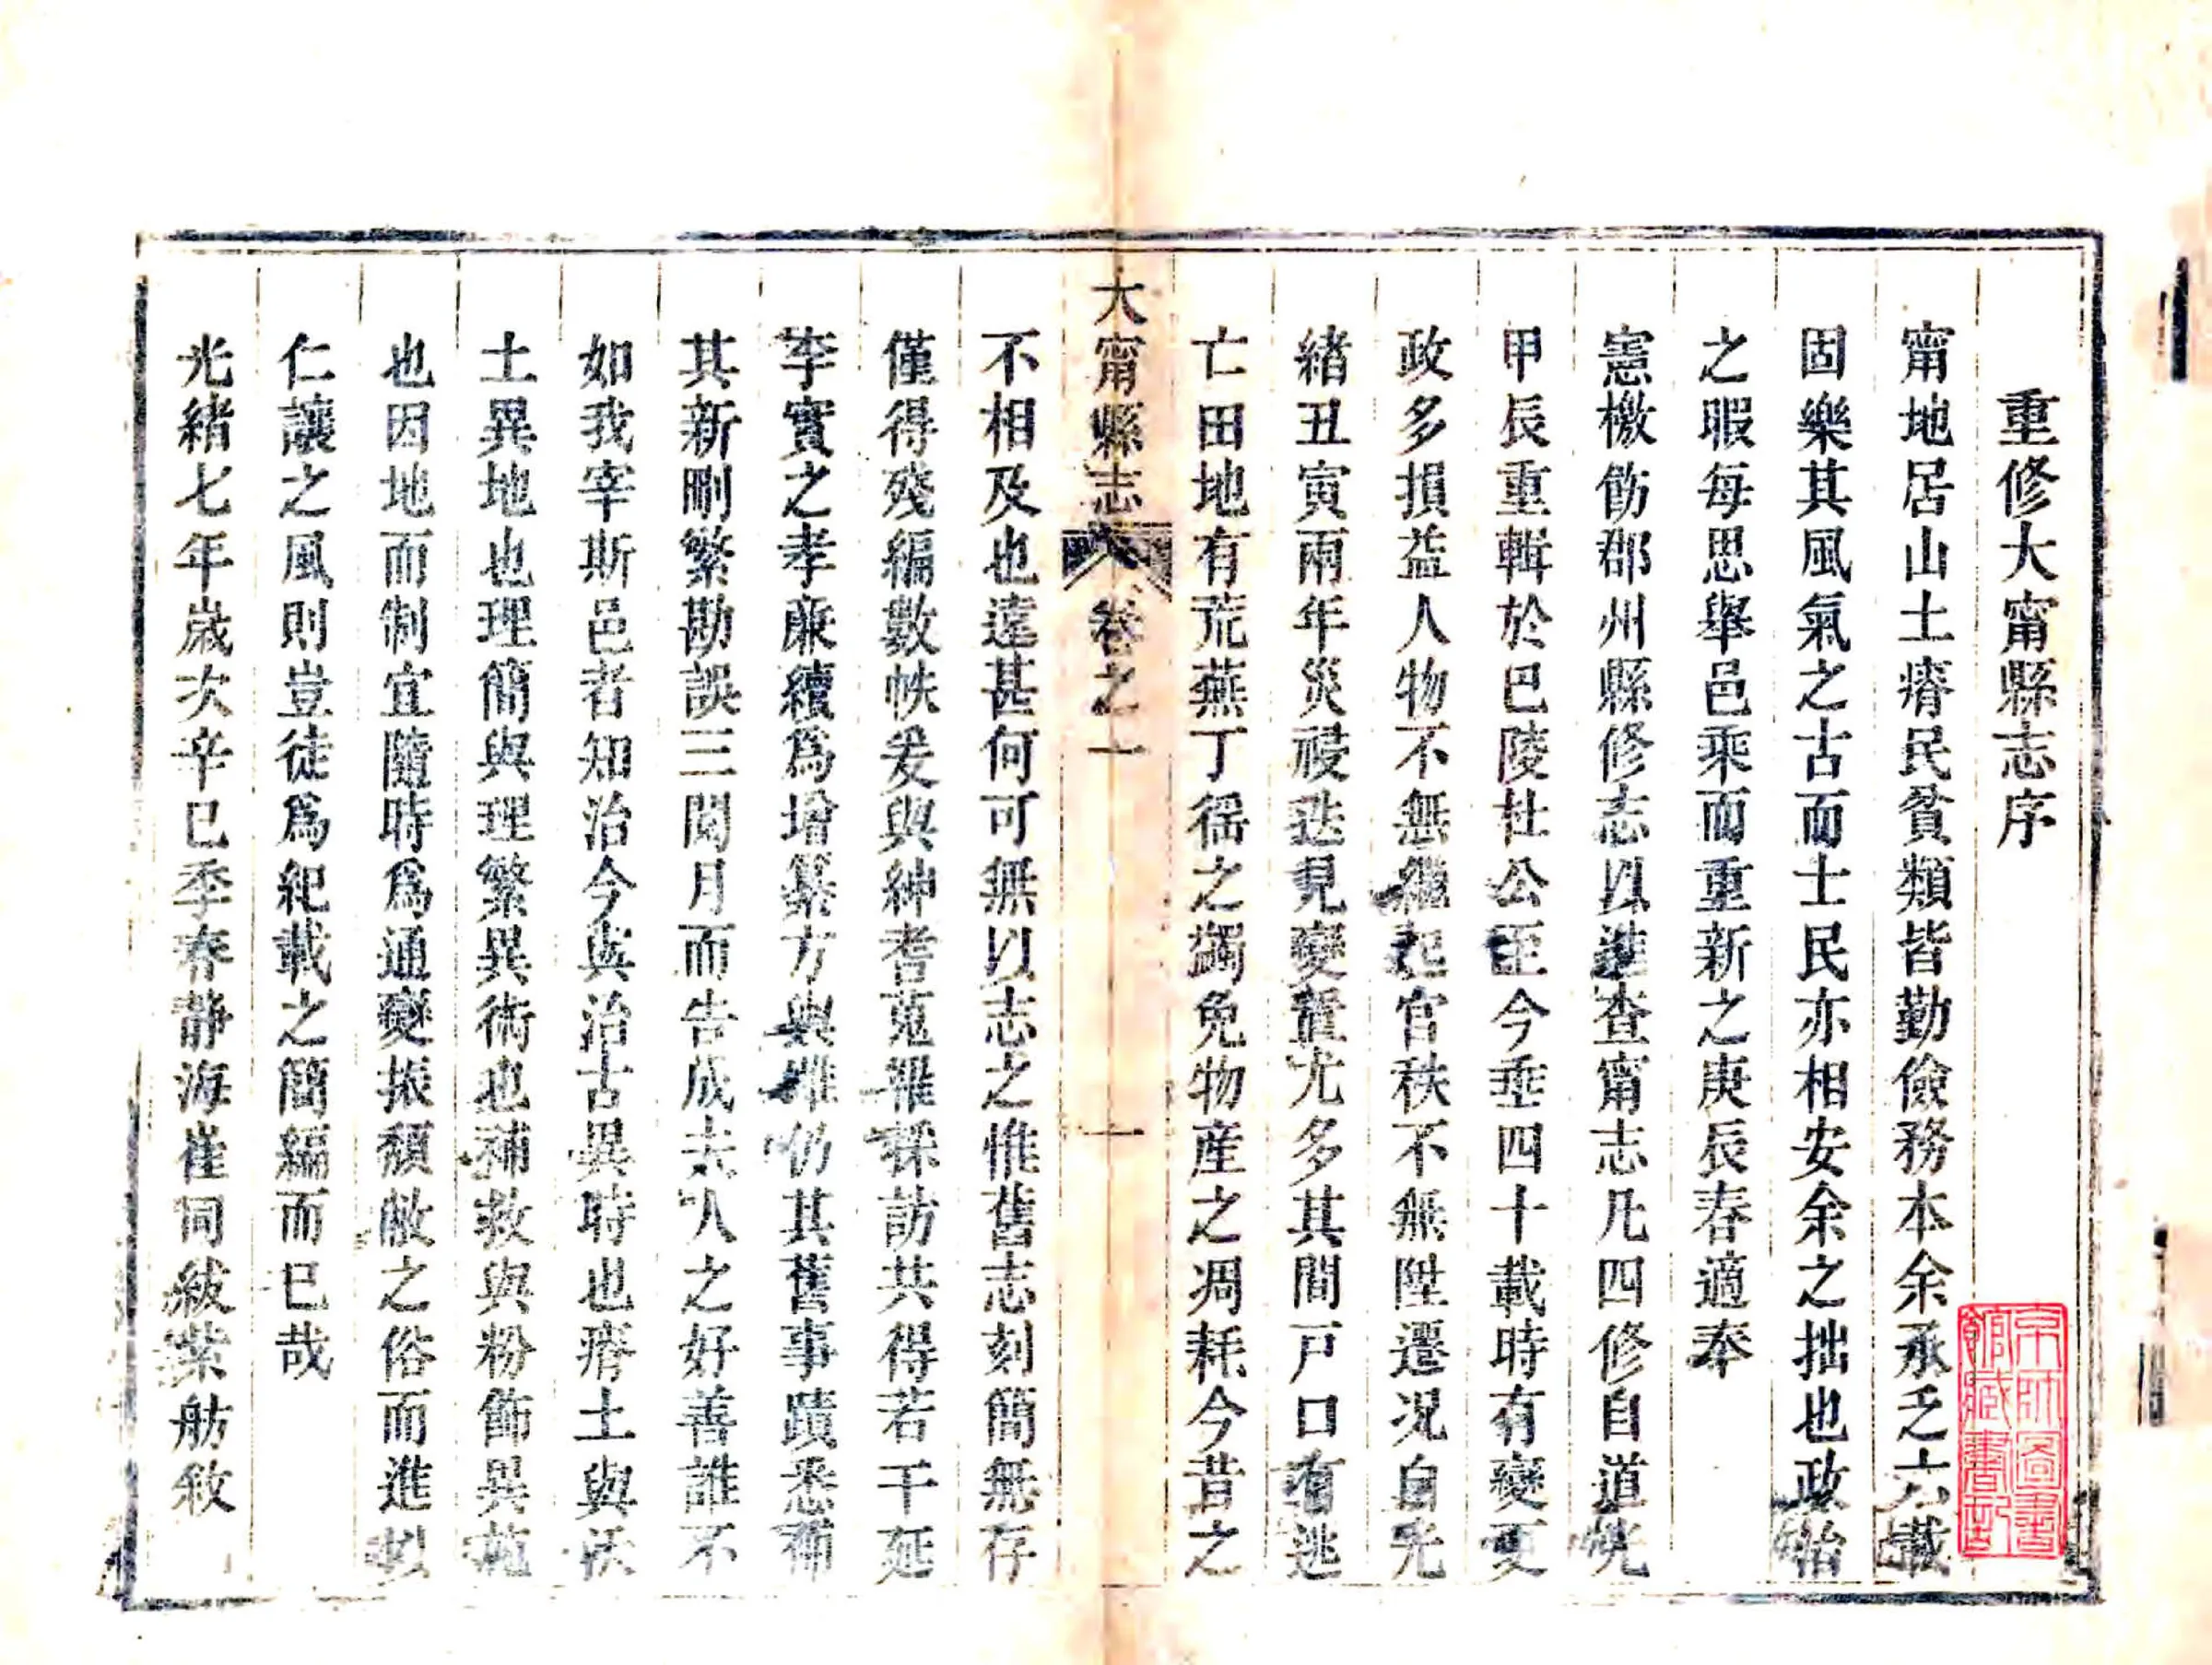 重修大甯縣志序
甯地居山土瘠民貧類皆勤儉務本余承乏六載
固樂其風氣之古而士民亦相安余之拙也政治
之暇每思舉邑乘而重新之庚辰春適奉
憲檄飭郡州縣修志以進查甯志凡四修自道光
甲辰重輯於巴陵杜公至今垂四十載時有變更
政多損益人物不無繼起官秩不無陞遷况自光
緒丑寅兩年災祲迭見變置尤多其間戸口有逃
亡田地有荒蕪丁徭之蠲免物産之凋耗今昔之
大甯縣志 卷之一 一
不相及也遠甚何可無以志之惟舊志刻簡無存
僅得殘編數帙爰與紳耆蒐羅採訪共得若干延
李實之孝亷續爲增纂方輿雖仍其舊事蹟悉補
其新刪繁勘誤三閱月而告成夫人之好善誰不
如我宰斯邑者知治今與治古異時也瘠土與沃
土異地也理簡與理繁異術也補救與粉飾異施
也因地而制宜隨時爲通變振頹敝之俗而進以
仁讓之風則豈徒爲紀載之簡編而已哉
光緒七年嵗次辛巳季春靜海崔同紱紫舫敘
京師圖書
館藏書記